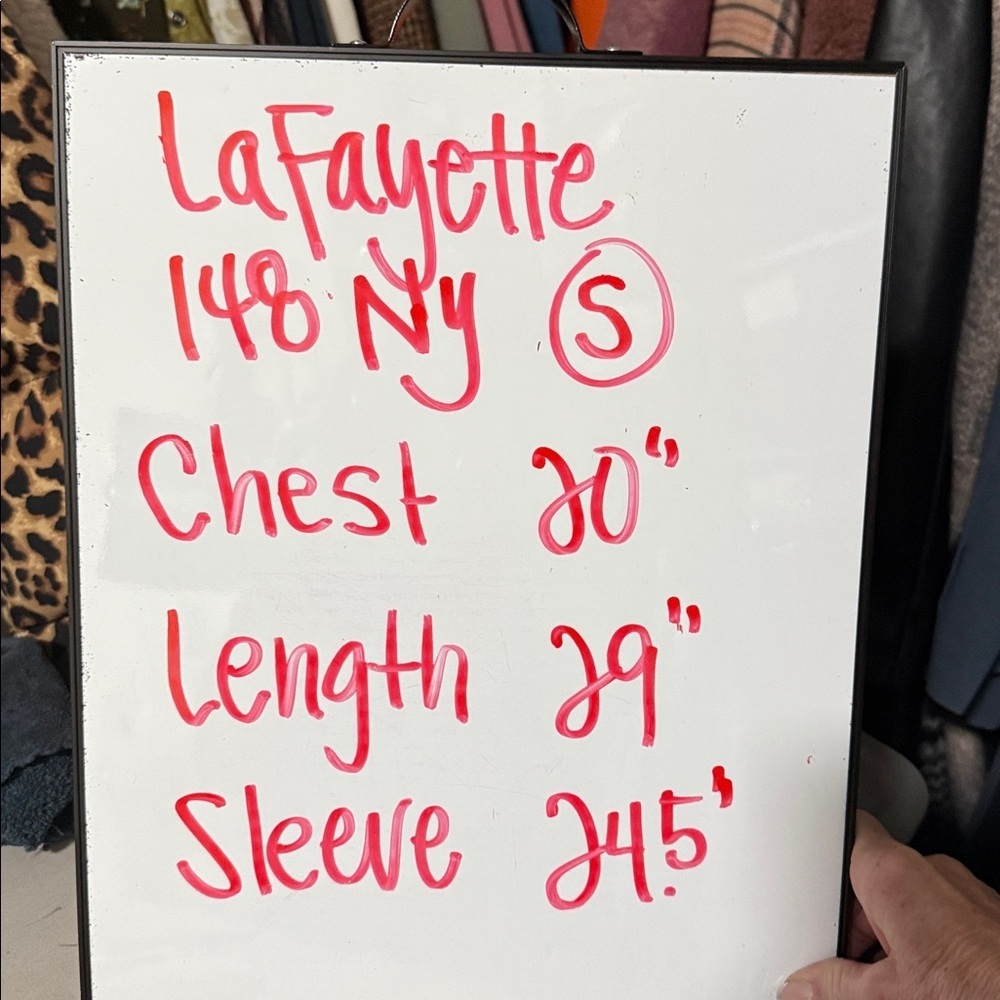 LaFayette
148 Ny S
Chest 20"
Length 29"
Sleeve 24.5"